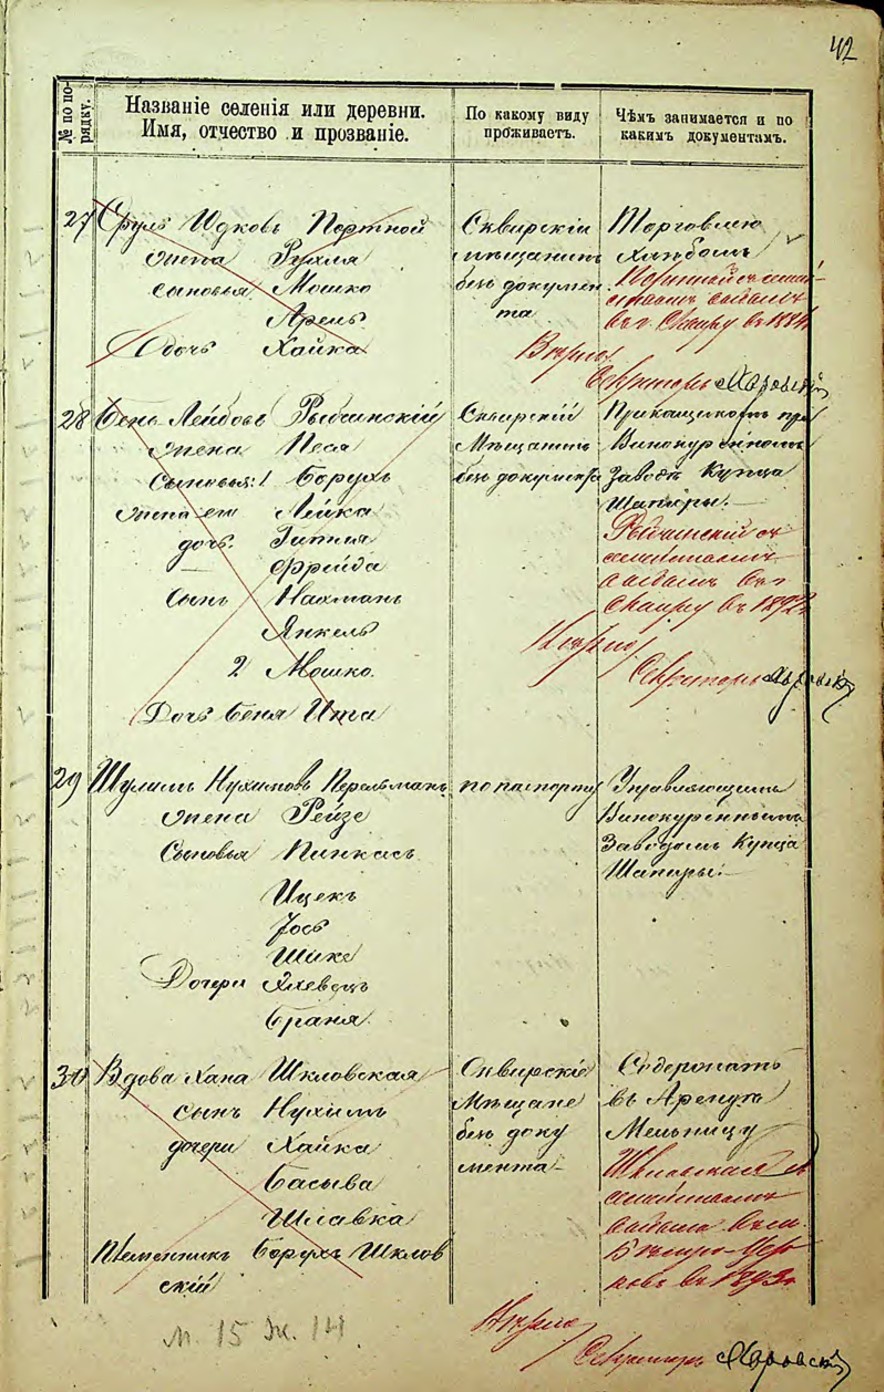 42
№ по по-
рядку.
Названіе селенія или деревни.
Имя, отчество и прозваніе.
По какому виду
проживаетъ.
Чѣмъ занимается и по
какимъ документамъ.
27 Сруль Идковъ Портной
жена Рухля
сыновья Мошко
Арель
дочь Хайка
Сквирскій
мѣщанинъ
безъ докумен
та
Торговлею
хлѣбомъ
Портной съ семей-
ствомъ
въ г. Сквиру въ 1884
Вѣрно:
Секретарь
28 Бень Лейбовъ Рыбчинскій
жена Песя
Сыновья: 1 Борухъ
жена его Лейка
дочь: Гитля
— Фрейда
сынъ Нахманъ
Янкель
2 Мошко.
Дочь Беня Ита
Сквирскій
Мѣщанинъ
безъ документа
Прикащикомъ при
Винокуренномъ
Заводѣ Купца
Шапиры. —
Рыбчинскій съ
семействомъ
въ г
Сквиру въ 1892г
Вѣрно:
Секретарь
29 Шулимъ Нухимовъ Перельманъ
жена Рейзе
Сыновья Пинкасъ
Ицекъ
Іось
Шике
Дочери
Браня.
по паспорту
Управляющимъ
Винокуреннымъ
Заводомъ Купца
Шапиры. —
30 Вдова Хана Шкловская
сынъ Нухимъ
дочери Хайка
Басыва
Шлавка
Племенникъ Борухъ Шклов
скій
Сквирскіе
Мѣщане
безъ доку
мента —
Содержатъ
въ Аренду
Мельницу
Шкловская съ
семействомъ
въ м.
Бѣлую-Цер-
ковь въ 1893г
м. 15 ж. 14
Вѣрно
Секретарь